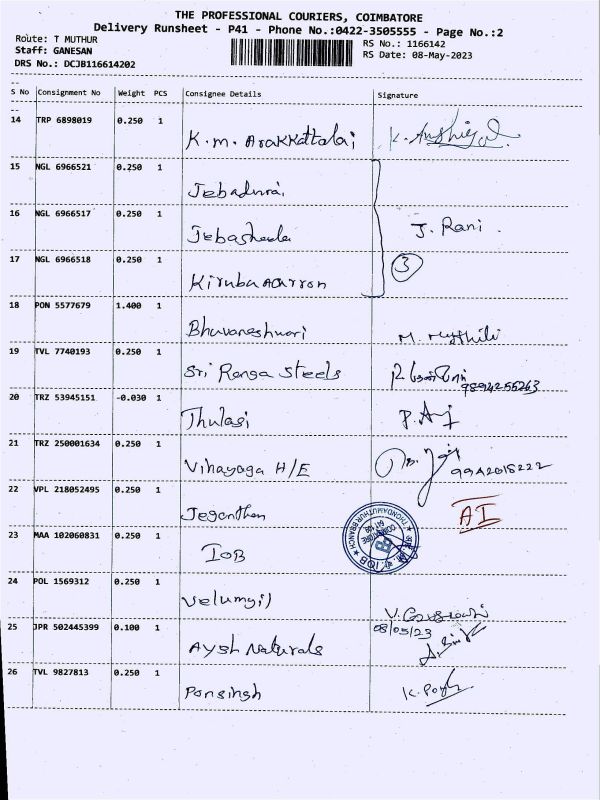 THE PROFESSIONAL COURIERS, COIMBATORE
Delivery Runsheet - P41 - Phone No.:0422-3505555 - Page No.:2
Route: T MUTHUR
Staff: GANESAN
DRS No.: DCJB116614202
RS No.: 1166142
RS Date: 08-May-2023
S No Consignment No Weight PCS Consignee Details Signature
14 TRP 6898019 0.250 1 K.m. Arakkattalai
15 NGL 6966521 0.250 1 Jebadurai
16 NGL 6966517 0.250 1 Jebasheela J. Rani
17 NGL 6966518 0.250 1 Kiruba Aarron 3
18 PON 5577679 1.400 1 Bhuvaneshwari M.
19 TVL 7740193 0.250 1 Sri Ranga Steels 9894256263
20 TRZ 53945151 -0.030 1 Thulasi
21 TRZ 250001634 0.250 1 Vihayaga H/E 9942018222
22 VPL 218052495 0.250 1 Jeganthan AI
23 MAA 102060831 0.250 1 IOB THONDAMUTHUR BRANCH COIMBATORE
24 POL 1569312 0.250 1 Velumyil V.
25 JPR 502445399 0.100 1 Aysh Naturals 08/05/23
26 TVL 9827813 0.250 1 Ponsingh K.